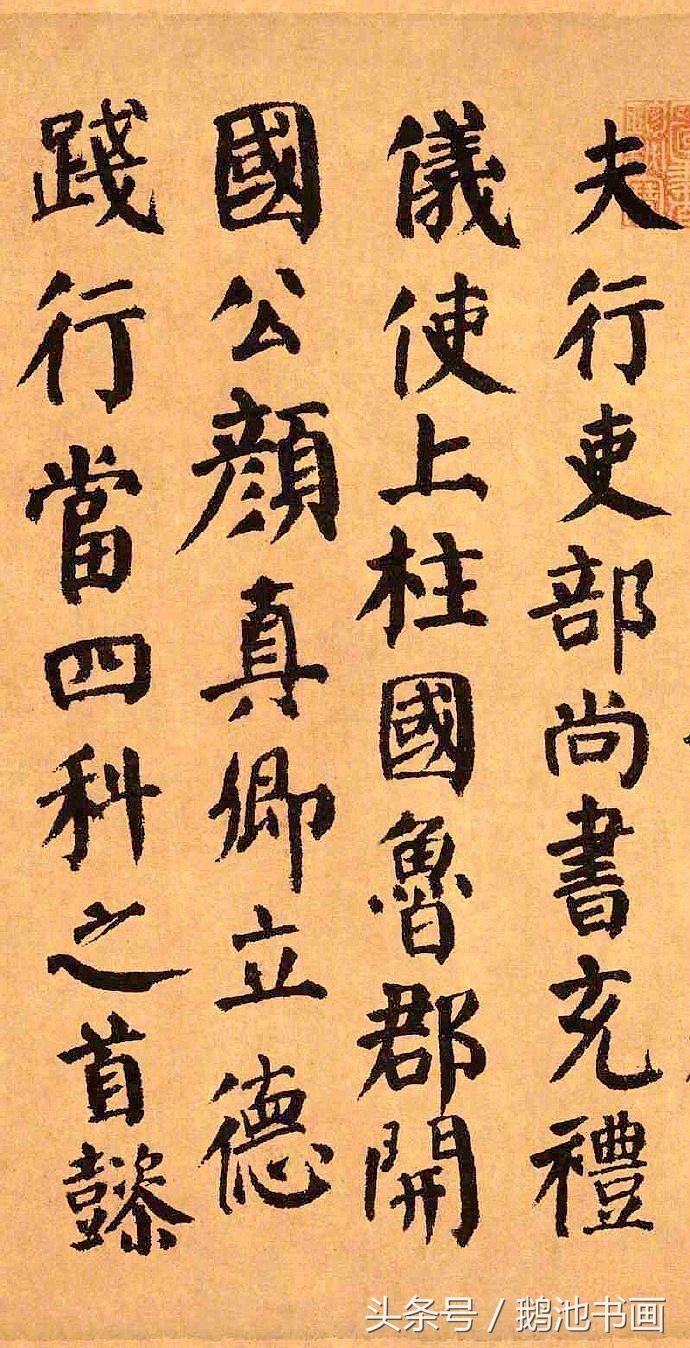 夫行吏部尚書充禮
儀使上柱國魯郡開
國公顔真卿立德
踐行當四科之首懿
头条号 / 鹅池书画